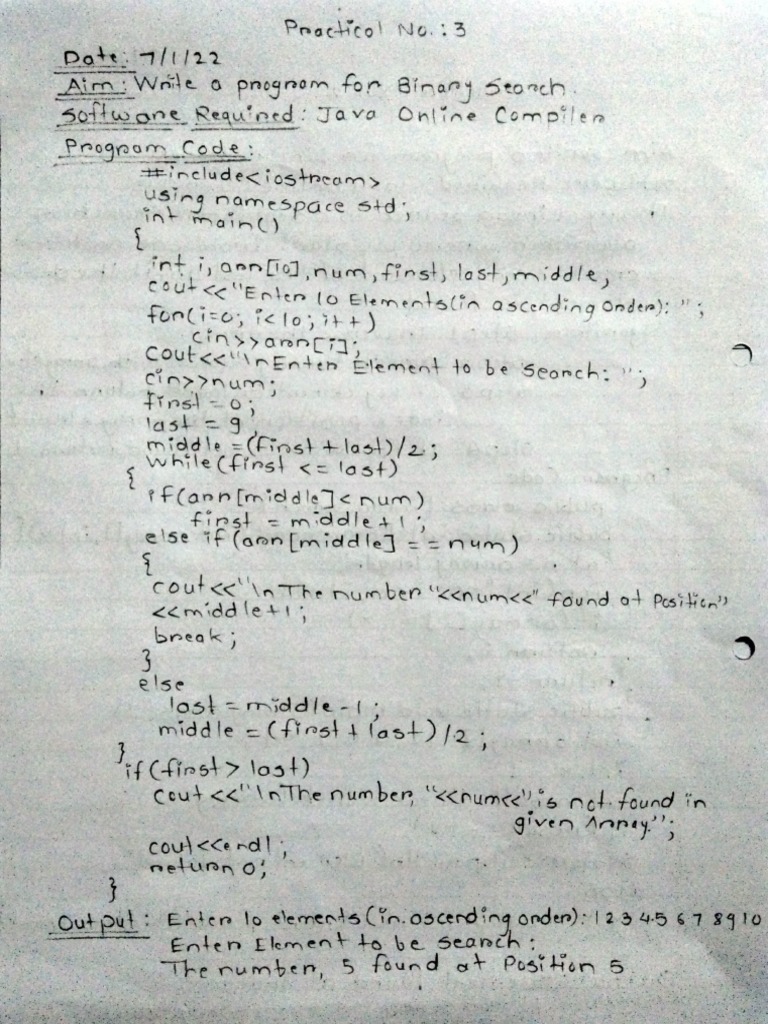 Practical No. : 3
Date: 7/1/22
Aim: Write a program for Binary Search.
Software Required: Java Online Compiler
Program Code:
#include<iostream>
using namespace std;
int main()
{
int i, arr[10], num, first, last, middle;
cout<<"Enter 10 Elements(in ascending Order): ";
for(i=0; i<10; i++)
cin>>arr[i];
cout<<"\nEnter Element to be Search: ";
cin>>num;
first = 0;
last = 9
middle = (first + last)/2;
while(first <= last)
{
if(arr[middle]< num)
first = middle+1;
else if (arr[middle] == num)
{
cout<<"\nThe number "<<num<<" found at Position"
<<middle+1;
break;
}
else
last = middle-1;
middle = (first + last)/2;
}
if(first > last)
cout<<"\nThe number, "<<num<<" is not found in
given Array.";
cout<<endl;
return 0;
}
Output: Enter 10 elements (in ascending order): 1 2 3 4 5 6 7 8 9 10
Enter Element to be search:
The number, 5 found at Position 5